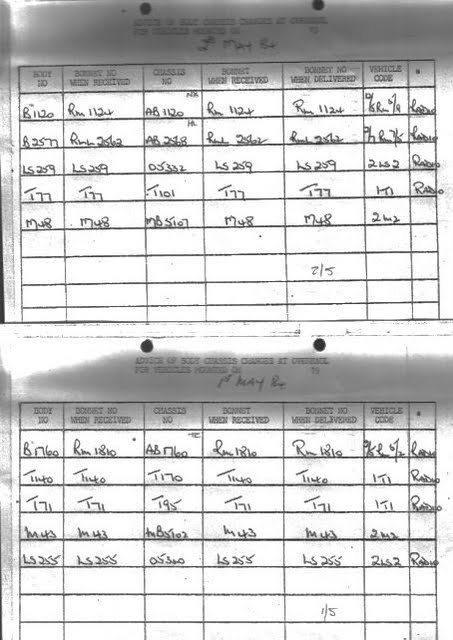 ADVICE OF BODY CHASSIS CHANGES AT OVERHAUL
FOR VEHICLES MOUNTED ON 19
2nd MAY 84
BODY NO BONNET NO WHEN RECEIVED CHASSIS NO BONNET WHEN RECEIVED BONNET NO WHEN DELIVERED VEHICLE CODE *
B1120 RM 1124 AB1120 RM 1124 RM 1124 RM RADIO
B2577 RML 2562 AB 2568 RML 2562 RML 2562 RADIO
LS259 LS259 05332 LS259 LS259 2LS2 RADIO
T77 T77 T101 T77 T77 1T1 RADIO
M48 M48 MB5107 M48 M48 2M2
2/5
ADVICE OF BODY CHASSIS CHANGES AT OVERHAUL
FOR VEHICLES MOUNTED ON 19
1st MAY 84
BODY NO BONNET NO WHEN RECEIVED CHASSIS NO BONNET WHEN RECEIVED BONNET NO WHEN DELIVERED VEHICLE CODE *
B1760 RM 1810 AB1760 RM 1810 RM 1810 RM RADIO
T1140 T1140 T170 T1140 T1140 1T1 RADIO
T171 T171 T195 T171 T171 1T1 RADIO
M43 M43 MB5102 M43 M43 2M2
LS255 LS255 05320 LS255 LS255 2LS2 RADIO
1/5